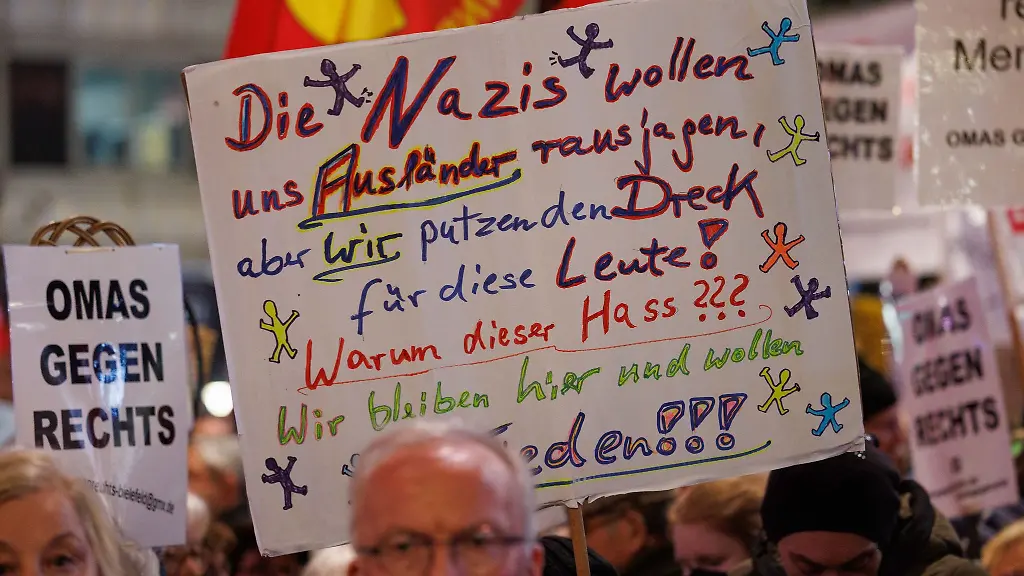 Die Nazis wollen
uns Ausländer rausjagen,
aber wir putzen den Dreck
für diese Leute!
Warum dieser Hass ???
Wir bleiben hier und wollen
eden!!!
OMAS
GEGEN
RECHTS
OMAS
GEGEN
CHTS
Men
OMAS G
OMAS
GEGEN
RECHTS